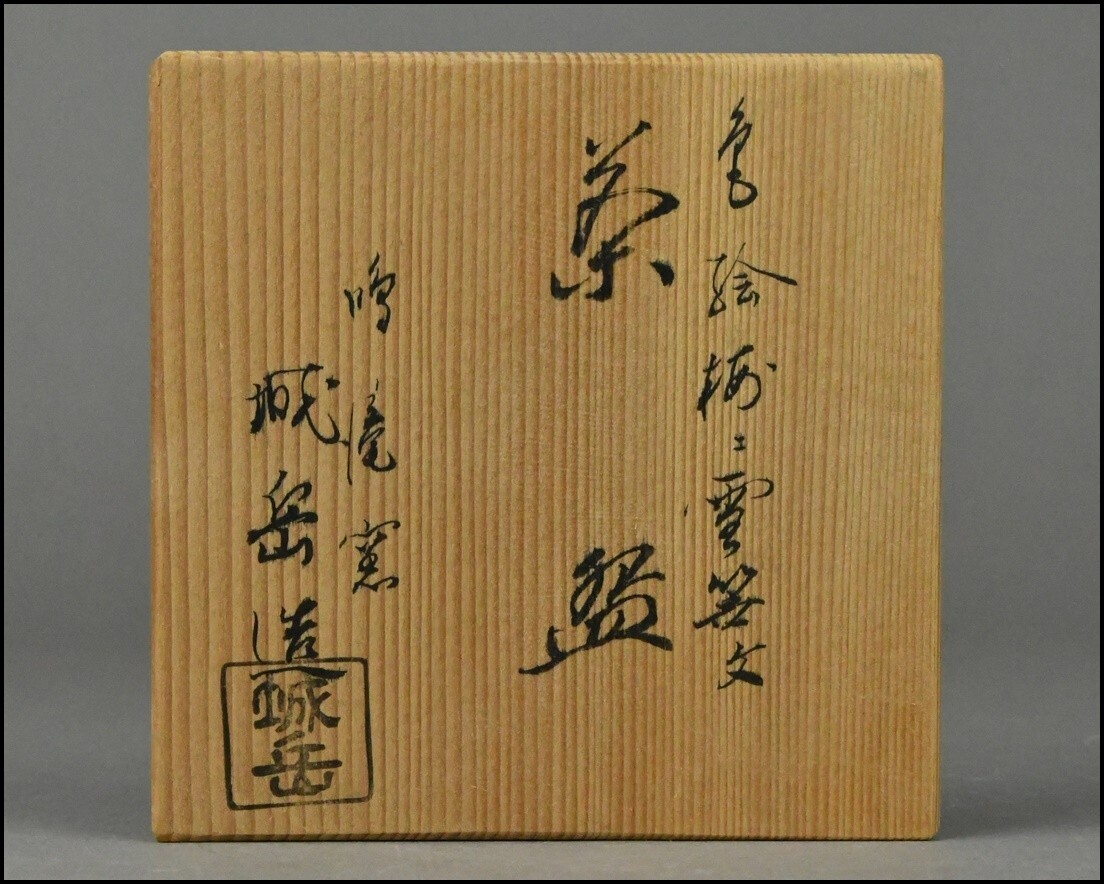 色絵梅ニ雪笹文
茶盌
鳴滝窯
城岳造
城岳